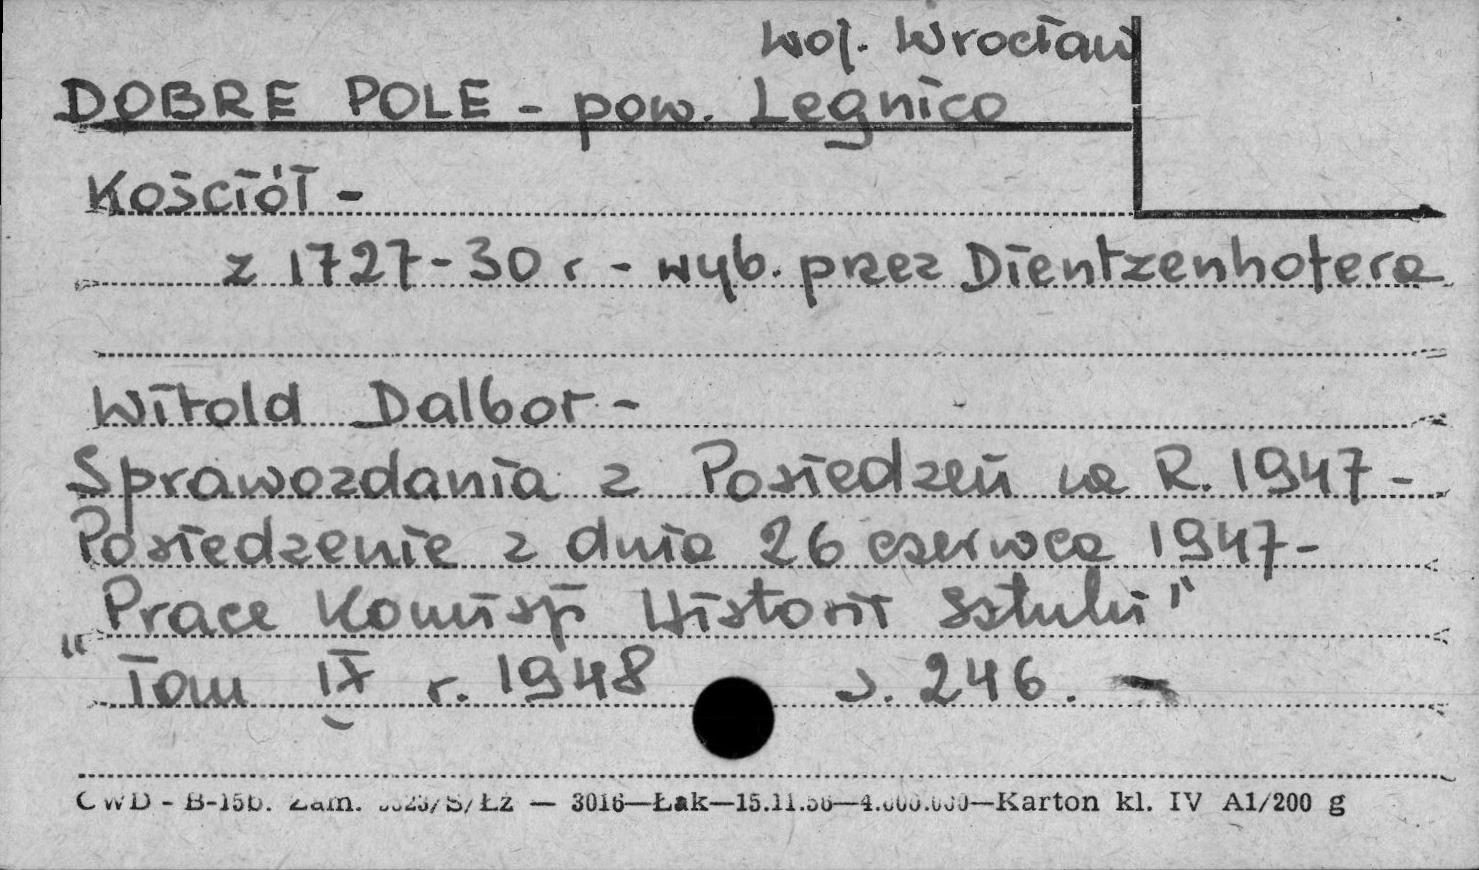 woj. Wrocław
DOBRE POLE - pow. Legnica
Kościół -
z 1727-30 r - wyb. przez Dientzenhofera
Witold Dalbor -
Sprawozdania z Posiedzeń za R. 1947 -
Posiedzenie z dnia 26 czerwca 1947 -
„Prace Komisji Historii Sztuki"
Tom IX r. 1948 s. 246.
CWD - B-15b. Zam. /S/Łż — 3016—Łak—15.11.56—4.000.000—Karton kl. IV A1/200 g